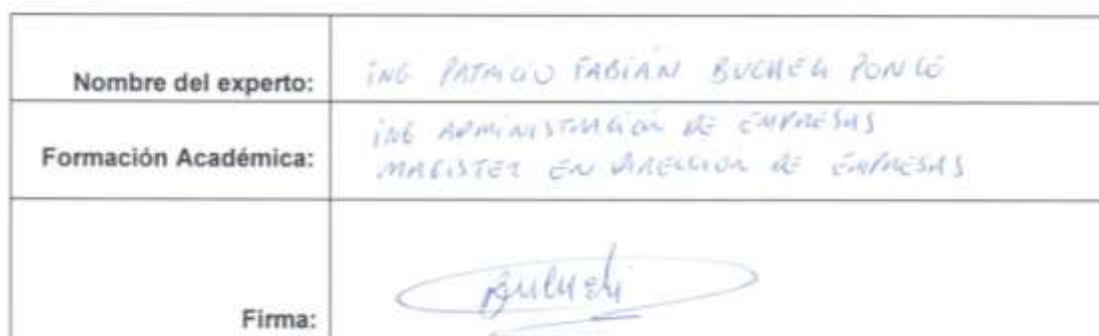 Nombre del experto: ING PATRICIO FABIÁN BUCHELI PONCE
Formación Académica: ING ADMINISTRACIÓN DE EMPRESAS
MAGISTER EN DIRECCIÓN DE EMPRESAS
Firma: Bucheli